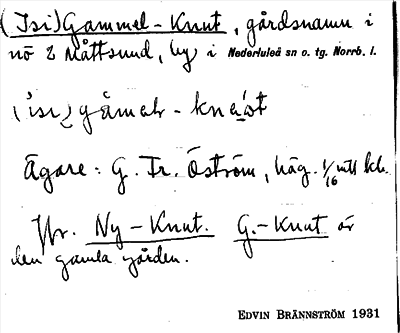 (Isi)Gammel-Knut, gårdsnamn i
nö 2 Måttsund, by i Nederluleå sn o. tg. Norrb. l.
Ägare: G. Fr. Öström, häg. 1/16 mtl kr.
Jfr. Ny-Knut. G.-Knut är
den gamla gården.
EDVIN BRÄNNSTRÖM 1931